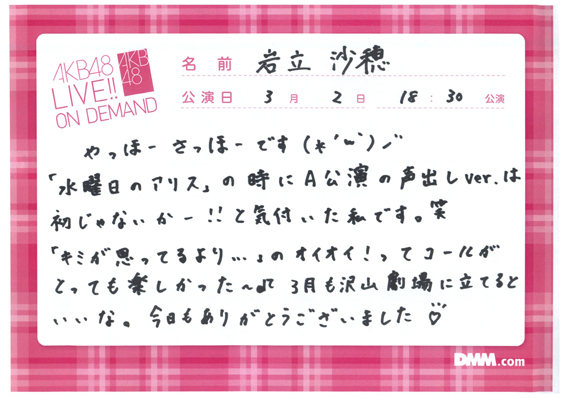 AKB48
LIVE!!
ON DEMAND
AKB
48
名前 岩立 沙穂
公演日 3月 2日 18:30 公演
やっほーさっほーです(*'ω')ノ
「水曜日のアリス」の時にA公演の声出しver.は
初じゃないかー!!と気付いた私です。笑
「キミが思ってるより…」のオイオイ!ってコールが
とっても楽しかった〜♫ 3月も沢山劇場に立てると
いいな。今日もありがとうございました♡
DMM.com